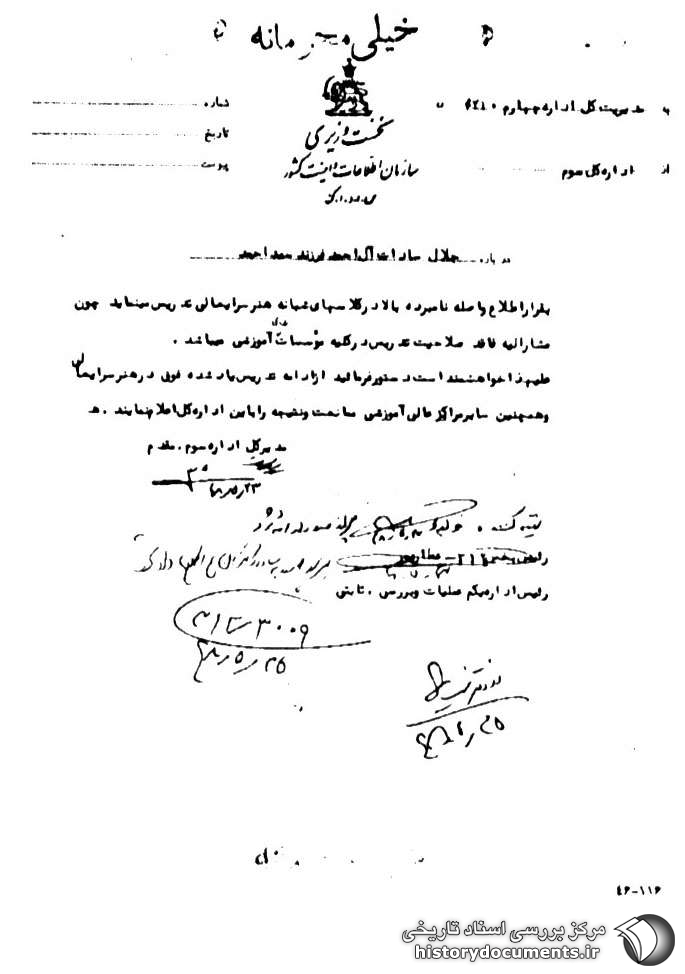 خیلی محرمانه
به مدیریت کل اداره چهارم
از اداره کل سوم
نخست وزیری
سازمان اطلاعات و امنیت کشور
س.ا.و.ا.ک
شماره
تاریخ
پیوست
درباره جلال سادات آل احمد فرزند سید احمد
بقرار اطلاع واصله نامبرده بالا در کلاسهای شبانه هنرسرایعالی تدریس مینماید چون
مشارالیه فاقد صلاحیت تدریس در کلیه مؤسسات آموزشی میباشد .
علیهذا خواهشمند است دستور فرمائید از ادامه تدریس یاد شده فوق در هنرسرایعالی
و همچنین سایر مراکز عالی آموزشی ممانعت و نتیجه را باین اداره کل اعلام نمایند . ه
مدیر کل اداره سوم . مقدم
۴۸/۵/۲۳
رئیس بخش ۳۱۲
رئیس اداره یکم عملیات و بررسی . ثابتی
۳۰۰۹
۴۸/۵/۲۵
۴۶-۱۱۶
مرکز بررسی اسناد تاریخی
historydocuments.ir